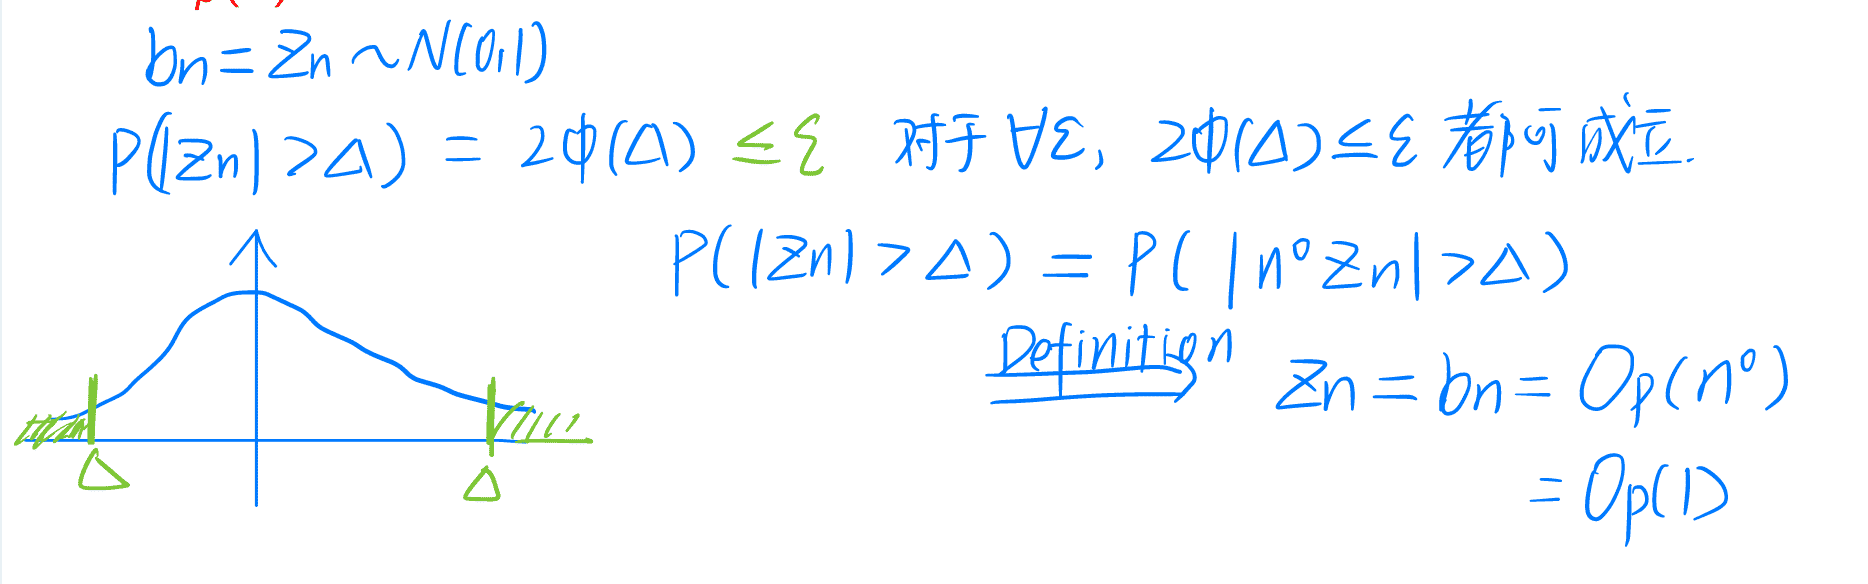 bn = Zn ~ N(0,1)
P(|Zn| > Δ) = 2Φ(Δ) ≤ ε 对于 ∀ε, 2Φ(Δ) ≤ ε 都可成立.
P(|Zn| > Δ) = P(|n⁰Zn| > Δ)
Definition Zn = bn = Op(n⁰)
= Op(1)
Δ Δ